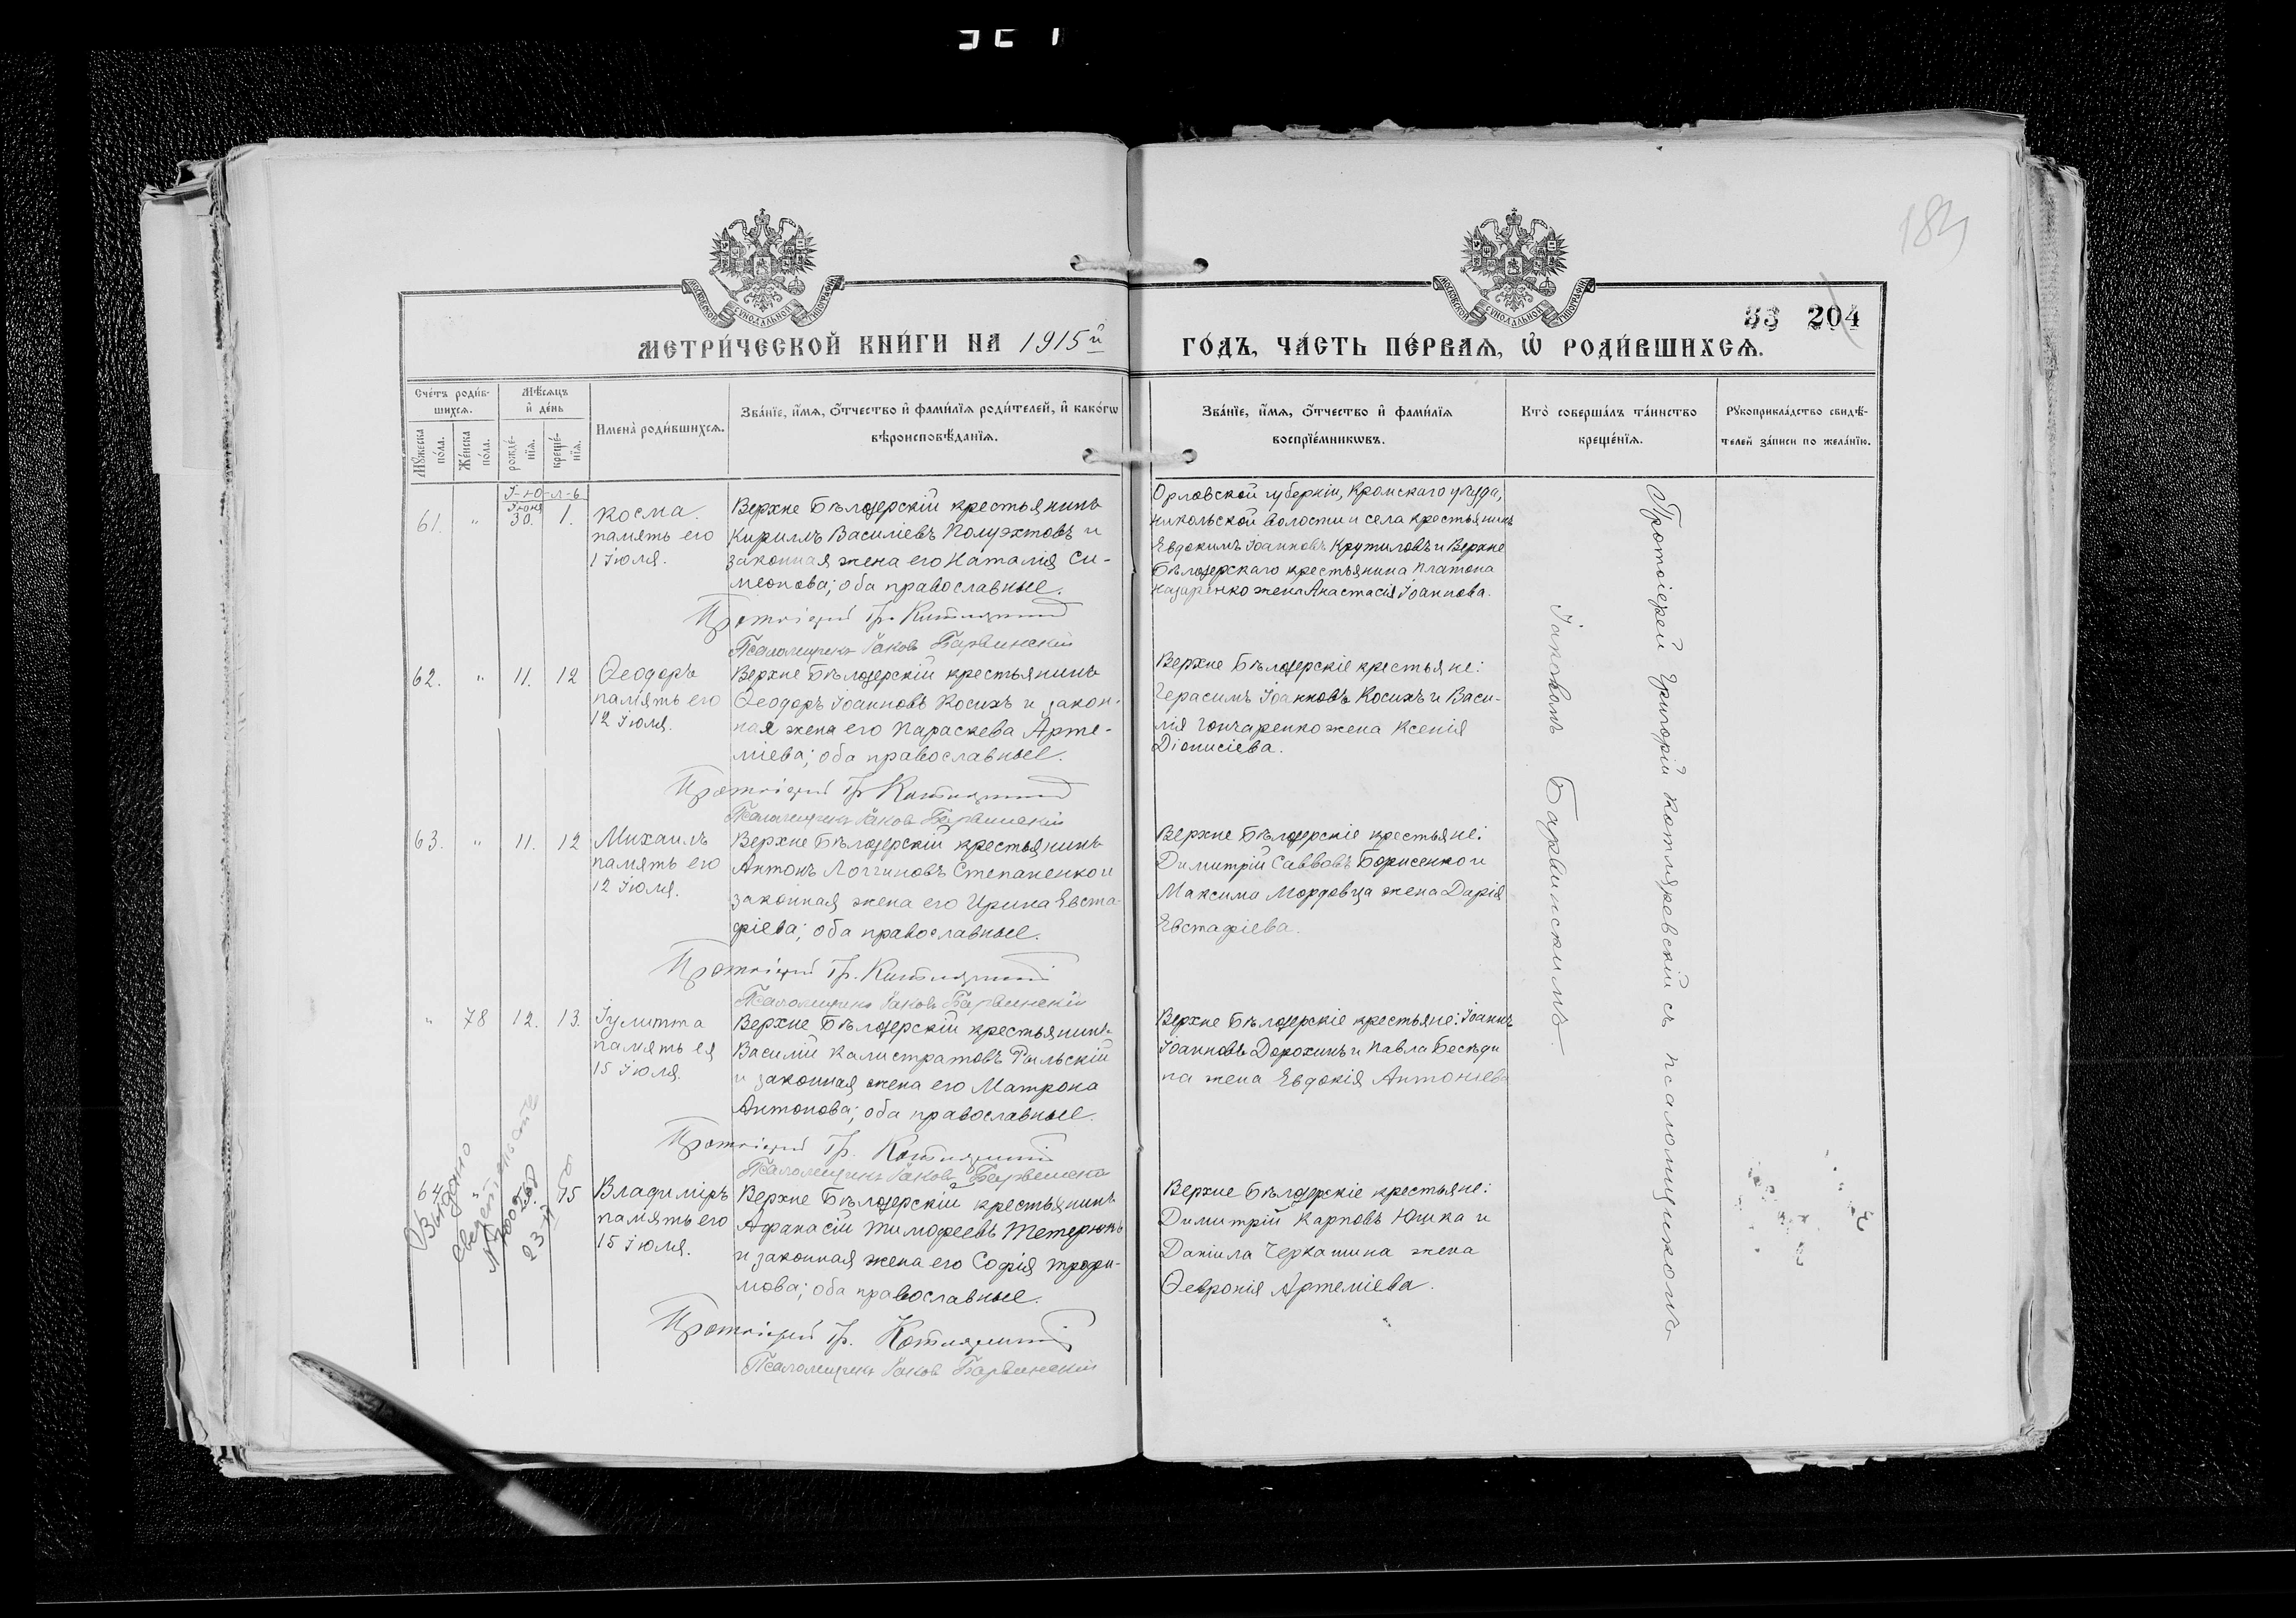 184
33 204
МЕТРИ́ЧЕСКОЙ КНИ́ГИ НА 1915й
ГО́ДЪ, ЧА́СТЬ ПЕ́РВАѦ, Ѡ РОДИ́ВШИХСѦ.
Сче́тъ роди́в-
шихсѧ.
Мѣ́сѧцъ
и҆ де́нь
Мꙋ́жеска
по́ла.
Же́нска
по́ла.
рожде́-
нїѧ.
креще́-
нїѧ.
И҆мена̀ роди́вшихсѧ.
Зва́нїе, и҆́мѧ, ѻ҆́тчество и҆ фамѝлїѧ роди́телей, и҆ како́гѡ
вѣроисповѣ́данїѧ.
Зва́нїе, и҆́мѧ, ѻ҆́тчество и҆ фами́лїѧ
воспрїе́мникѡвъ.
Кто̀ соверша́лъ та́инство
креще́нїѧ.
Рꙋкоприкла́дство свидѣ́-
телей за́писи по жела́нїю.
І-ю-л-ь
Іюня
61. " 30. 1.
Косма.
память его
1 Іюля.
Верхне Бѣлозерскій крестьянинъ
Кириллъ Василіевъ Полуэктовъ и
законная жена его Наталія Си-
меонова; оба православные.
Протоіерей Гр.
Псаломщикъ Іаковъ Барвинскій
Орловской губерніи, Кромскаго уѣзда,
Никольской волости и села крестьянинъ
Евдокимъ Іоанновъ Крутиловъ и Верхне
Бѣлозерскаго крестьянина Платона
Назаренко жена Анастасія Іоаннова.
62. " 11. 12
Ѳеодоръ
память его
12 Іюля.
Верхне Бѣлозерскій крестьянинъ
Ѳеодоръ Іоанновъ Косихъ и закон-
ная жена его Параскева Арте-
міева; оба православные.
Протоіерей Гр.
Псаломщикъ Іаковъ Барвинскій
Верхне Бѣлозерскіе крестьяне:
Герасимъ Іоанновъ Косихъ и Васи-
лія Гончаренко жена Ксенія
Діонисіева.
63. " 11. 12
Михаилъ
память его
12 Іюля.
Верхне Бѣлозерскій крестьянинъ
Антонъ Логгиновъ Степаненко и
законная жена его Ирина Евста-
фіева; оба православные.
Протоіерей Гр.
Псаломщикъ Іаковъ Барвинскій
Верхне Бѣлозерскіе крестьяне:
Димитрій Саввовъ Борисенко и
Максима Мордовца жена Дарія
Евстафіева.
" 78 12. 13.
Іулитта
память ея
15 Іюля.
Верхне Бѣлозерскій крестьянинъ
Василій Калистратовъ Рыльскій
и законная жена его Матрона
Антонова; оба православные.
Протоіерей Гр.
Псаломщикъ Іаковъ Барвинскій
Верхне Бѣлозерскіе крестьяне: Іоаннъ
Іоанновъ Дорохинъ и Павла Бесѣди
на жена Евдокія Антоніева
64. " 15
Владиміръ
память его
15 Іюля.
Верхне Бѣлозерскій крестьянинъ
Афанасій Тимофеевъ Тетерюкъ
и законная жена его Софія Трофи-
мова; оба православные.
Протоіерей Гр.
Псаломщикъ Іаковъ Барвинскій
Верхне Бѣлозерскіе крестьяне:
Димитрій Карповъ Юшка и
Даніила Черкашина жена
Ѳевронія Артеміева.
Выдано
Протоіерей Григорій Котляревскій съ псаломщикомъ
Іаковомъ Барвинскимъ.